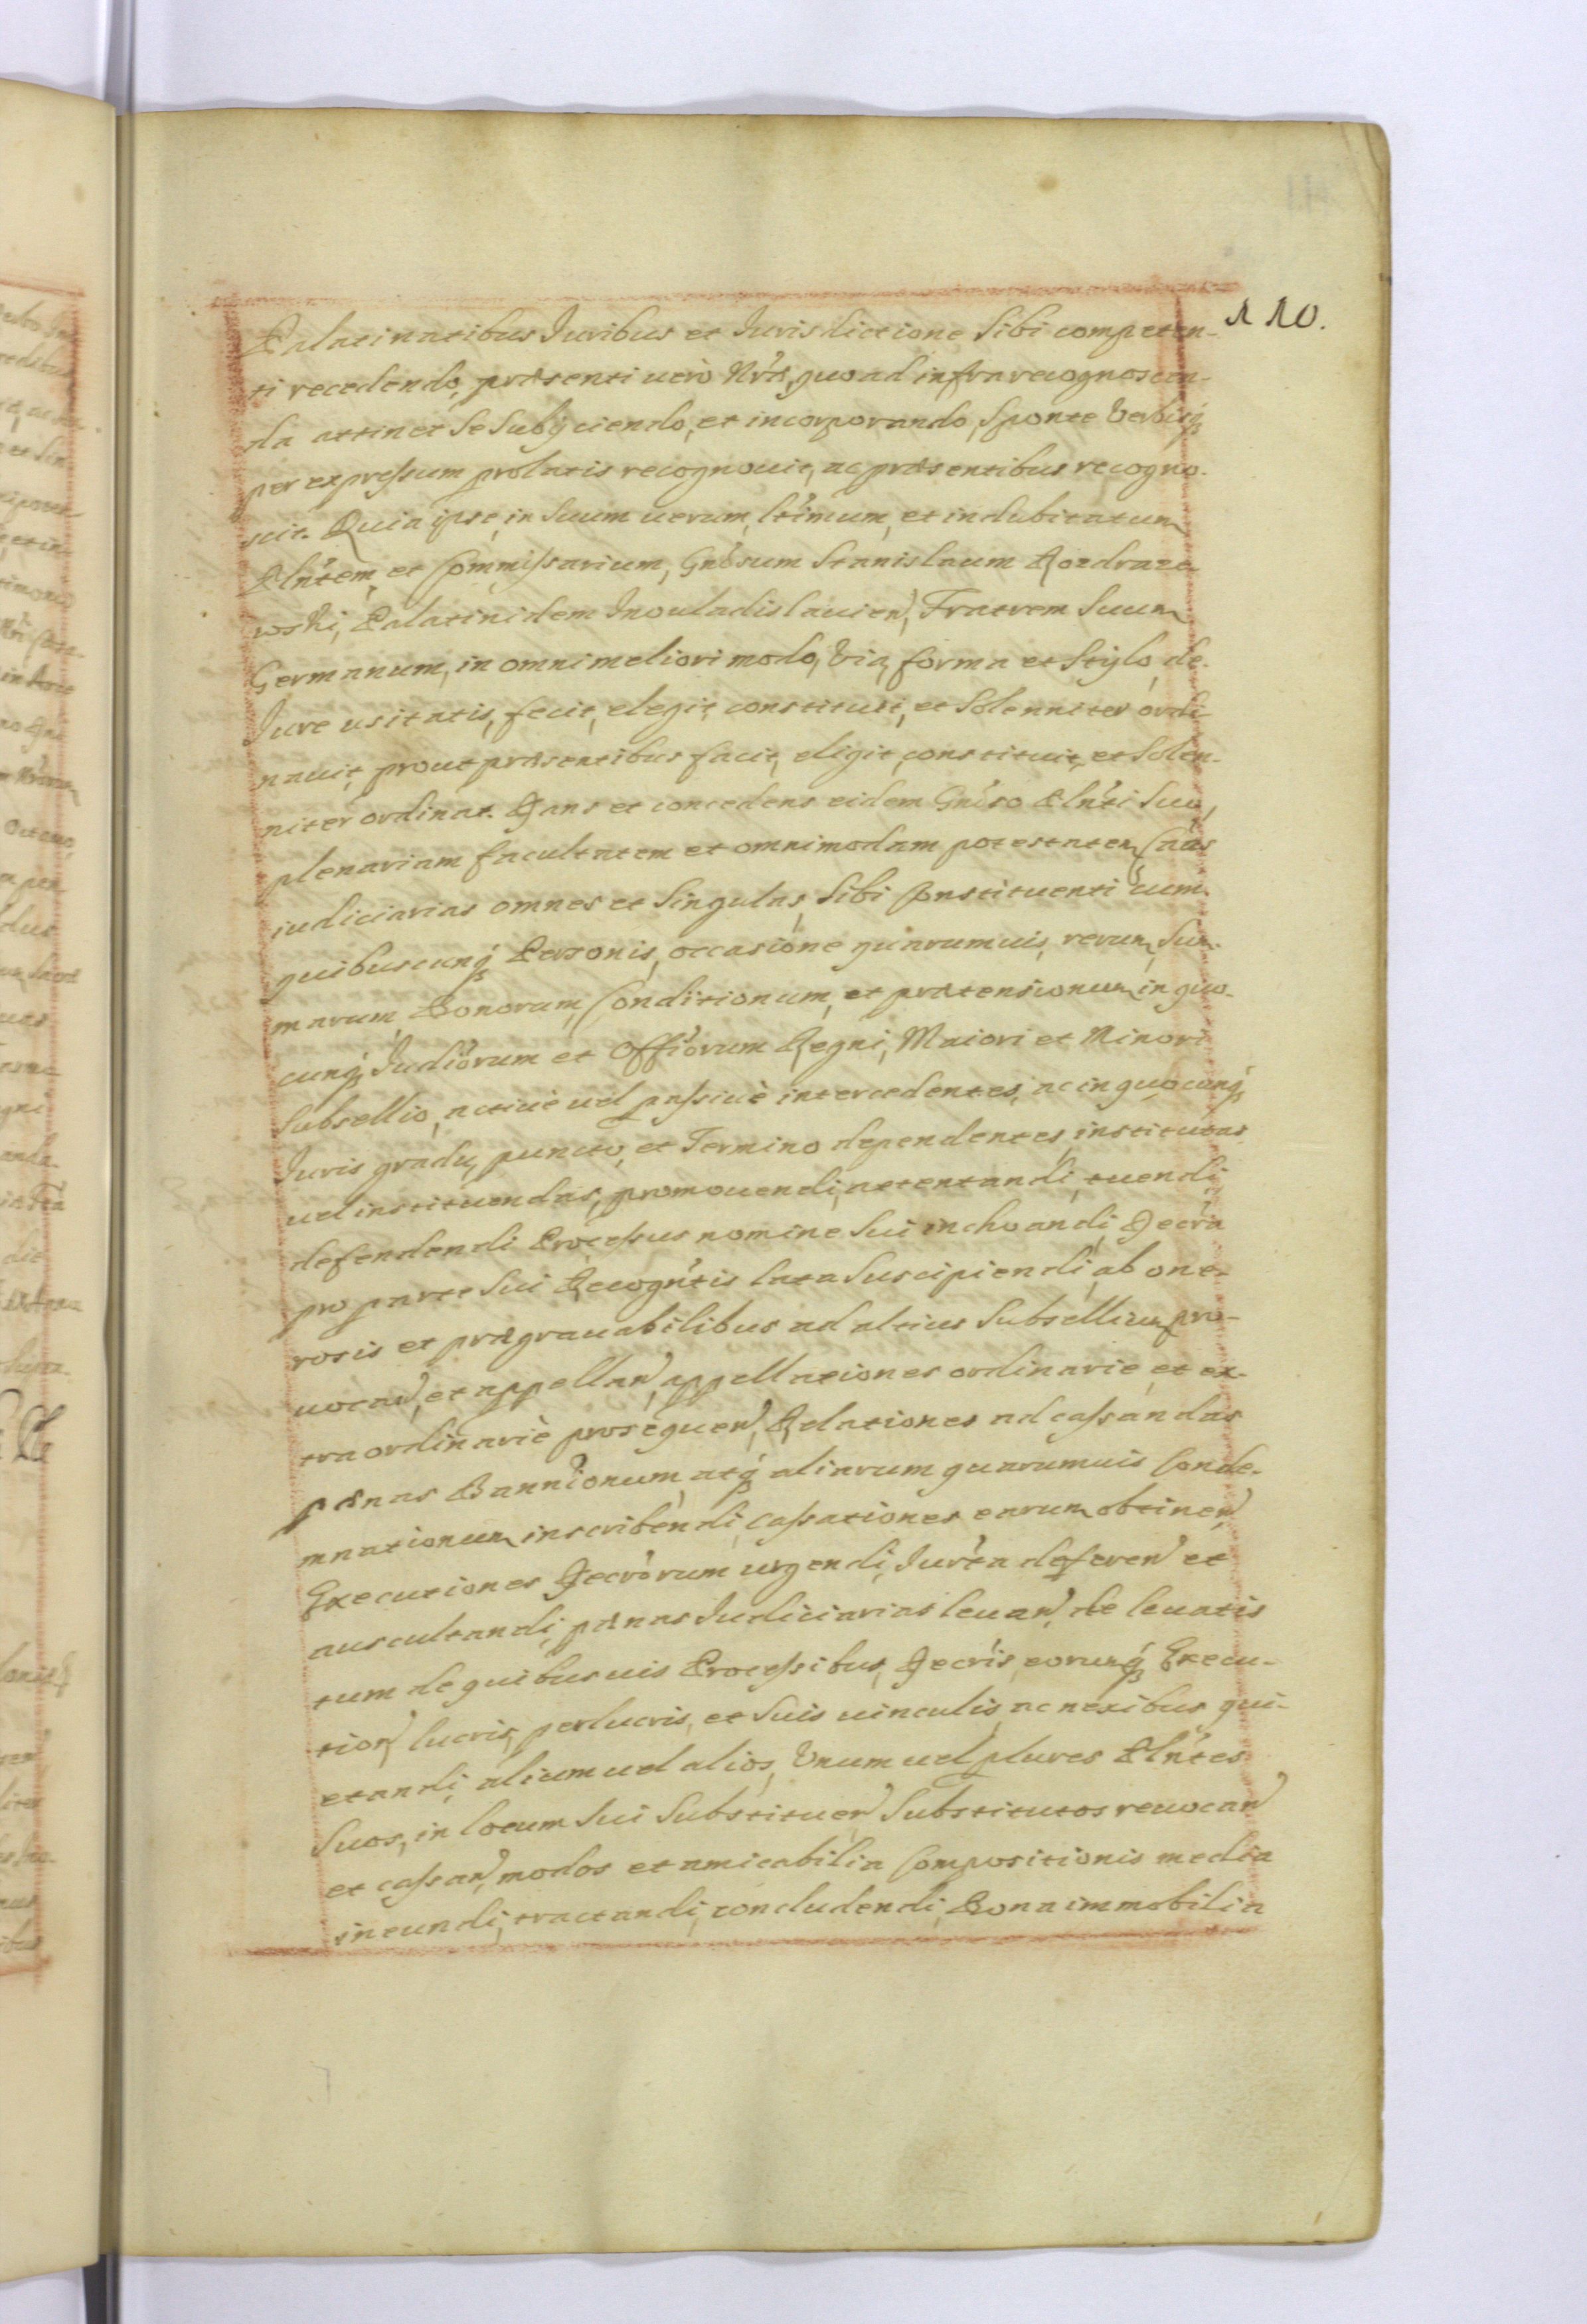 110.
Palatinatibus Juribus et Jurisdictione Sibi competen-
ti recedendo, præsenti uerò Nræ, quoad infra recognoscen-
da attinet Se Subijciendo, et incorporando, Sponte Verbisq́
per expressum prolatis recognouit, ac præsentibus recogno-
scit. Quia ipse, in Suum uerum, ltimum, et indubitatum
Plńtem, et Commissarium, Gnŏsum Stanislaum Rozdraze-
wski, Palatinidem Inouladislauien, Fratrem Suum
Germanum, in omni meliori modo, Via, forma et Stylo, de
Jure usitatis, fecit, elegit, constituit, et Solenniter ordi
nauit, prout præsentibus facit, eligit, constituit, et Solen-
niter ordinat. Dans et concedens eidem Gnŏso Plńti Suo,
plenariam facultatem et omnimodam potestatem, Caus̃
iudiciarias omnes et Singulas, Sibi Constituenti cum
quibuscunq́ Personis, occasione quarumuis, rerum, Sum-
marum, Bonorum, Conditionum, et prætensionum, in quo-
cunq́ Judiorum et Offiorum Regni, Maiori et Minori
Subsellio, actiuè uel passiuè intercedentes, ac in quocunq́
Juris gradu, puncto, et Termino dependentes, institutas
uel instituendas, promouendi, attentandi, tuendi,
defendendi Processus nomine Sui inchoandi, Decra
pro parte Sui Recogńtis lata Suscipiendi, ab one-
rosis et prægrauabilibus ad altius Subsellium pro-
uocan, et appellan, appellationes ordinarie, et ex-
traordinariè prosequen, Relationes ad cassandas
pænas Bannionum, atq́ aliarum quarumuis Conde-
mnationum, inscribendi, Cassationes earum obtinen,
Executiones Decrorum urgendi, Jurta deferen et
auscultandi, pænas Judiciarias leuan, de leuatis
tum de quibusuis Processibus, Decris, eorumq́ Execu-
tion, lucris, perlucris, et Suis uinculis, ac nexibus qui-
etandi, alium uel alios, Vnum uel plures Plńtes
Suos, in locum Sui Substituen, Substitutos reuocan
et cassan, modos et amicabilia Compositionis media
ineundi, tractandi, concludendi, Bona immobilia